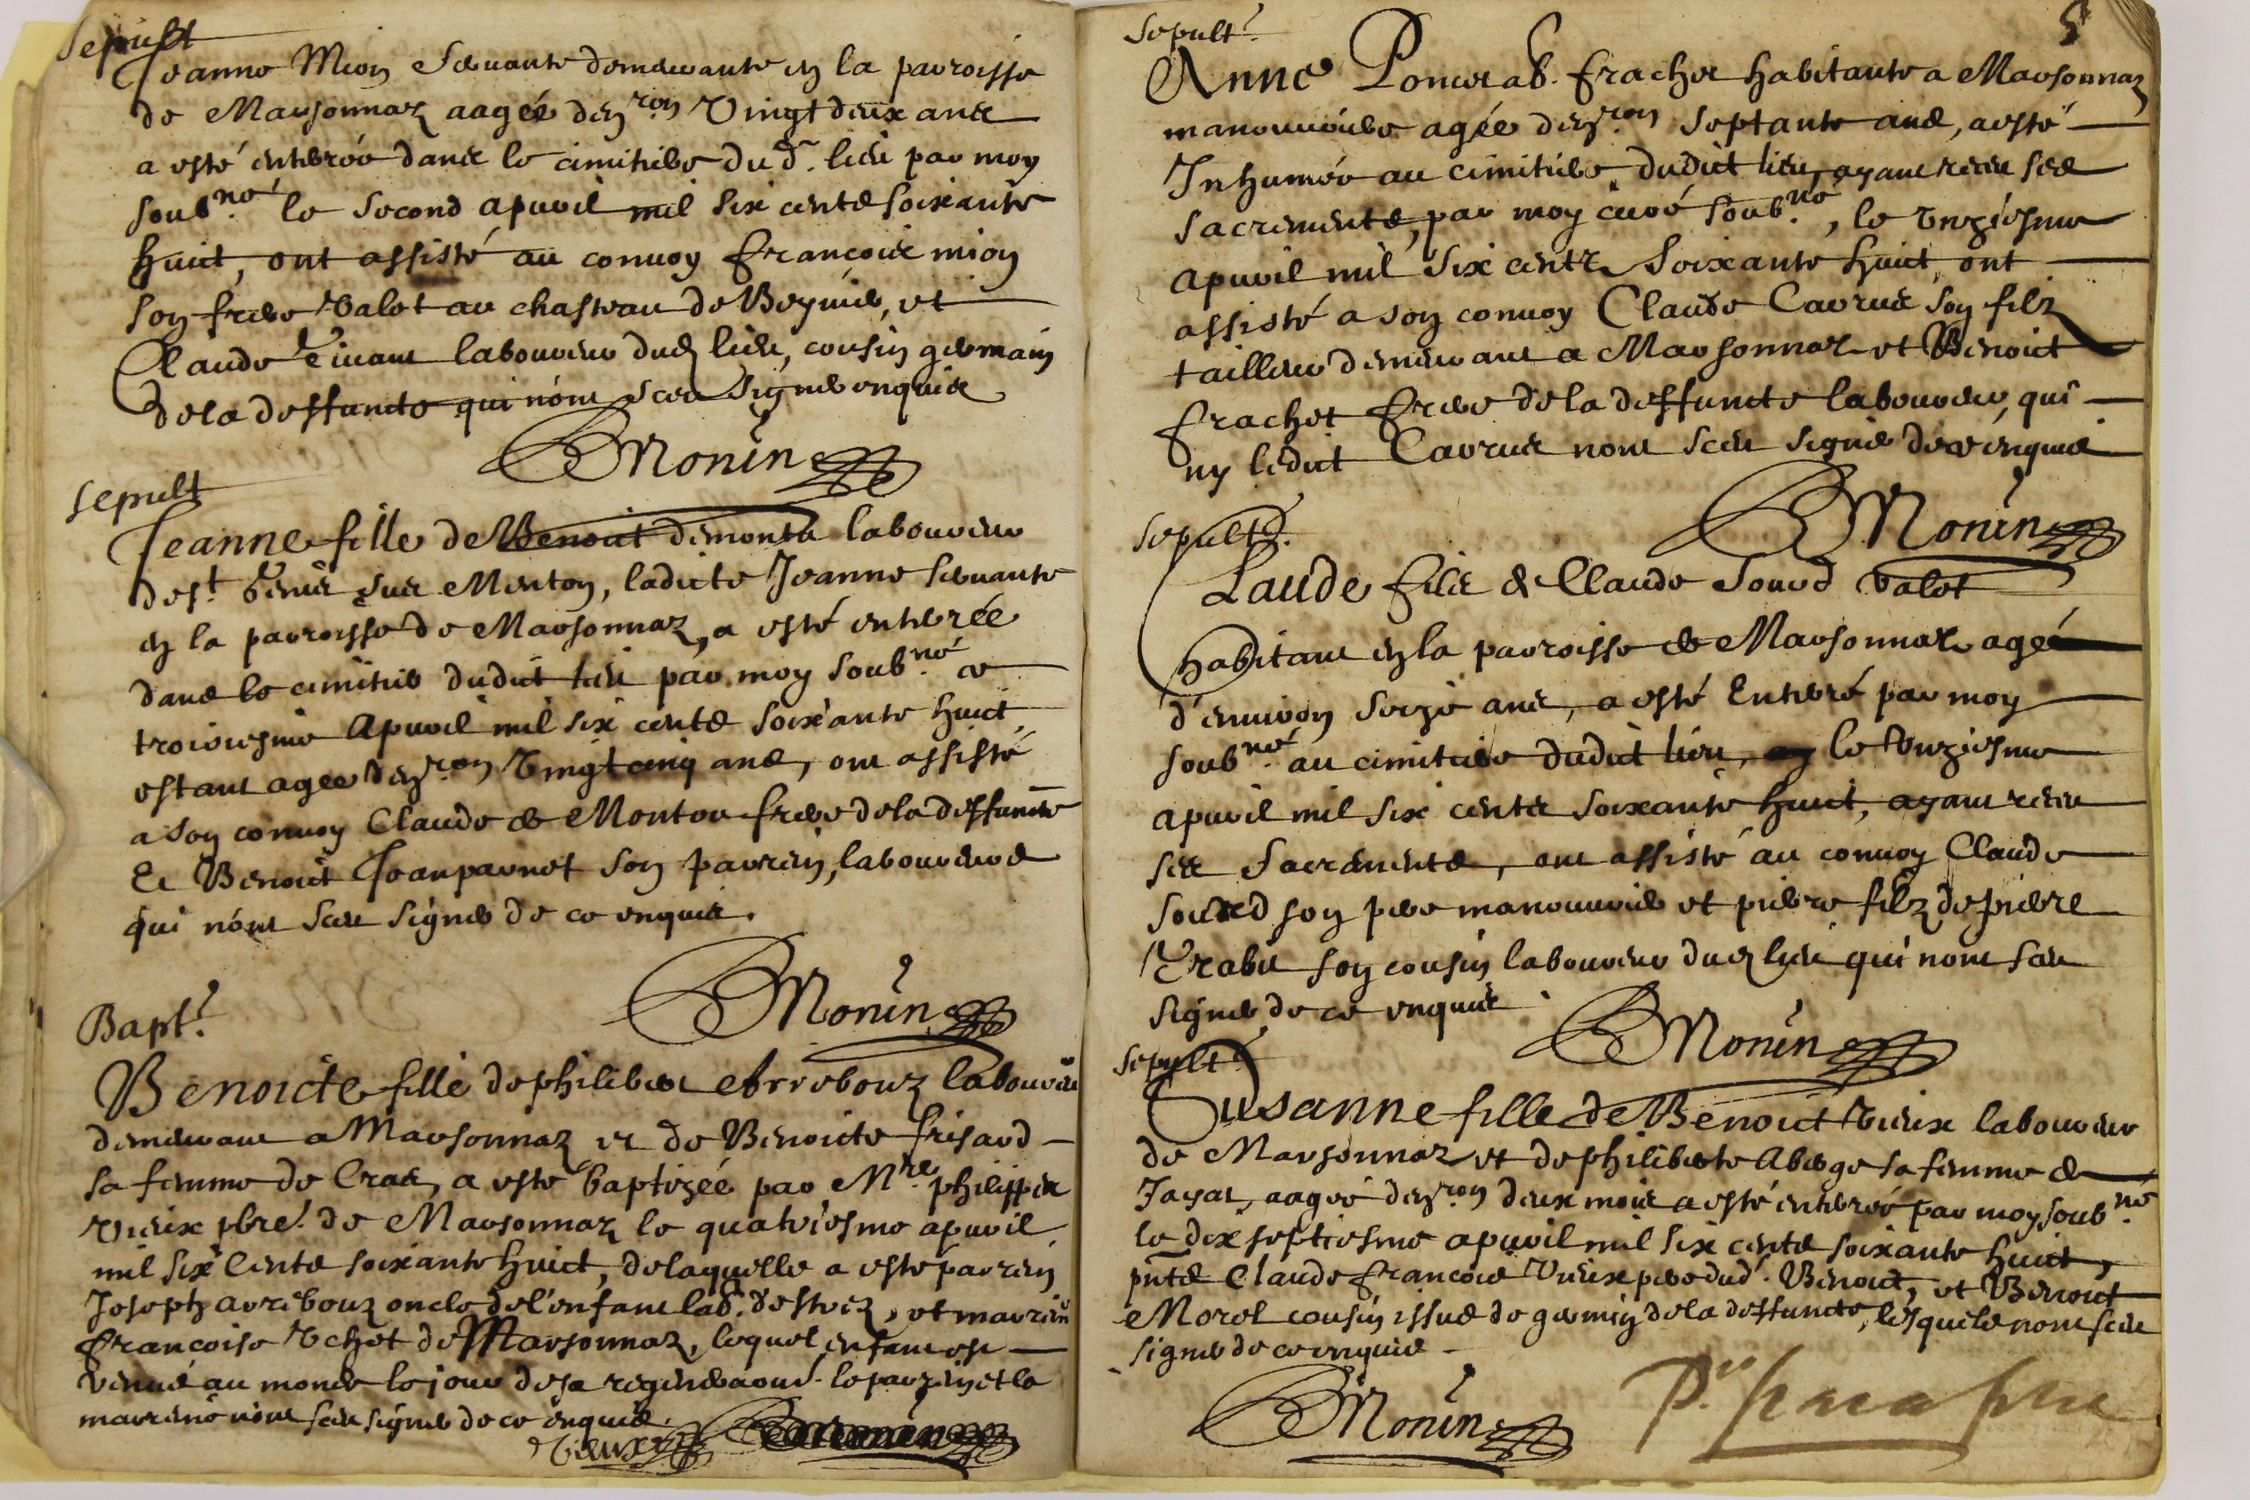 Sepult
Jeanne Mion Servante demeurante en la parroisse
de Marsonnaz aagée den.ron Vingt deux ans
a esté enterrée dans le cimitiere du d. lieu par moy
soub.né le second apvril mil six cents soixante
huict, ont assisté au convoy françois mion
son frere valet au chasteau de Beyvier, et
Claude Vivant laboureur dud lieu, cousin germain
de la deffuncte qui n'ont sceu signer enquis
Monin
Sepult
Jeanne fille de Benoit demonta laboureur
de st Genis sur Menton, ladicte Jeanne servante
en la parroisse de Marsonnaz, a esté enterrée
dans le cimitier dudict lieu par moy soub.né ce
troiziesme Apvril mil six cents soixante huict,
estant agee den.ron Vingt cinq ans, ont assisté
a son convoy Claude de Monton frere de la deffuncte
Et Benoit Jeanparnet son parrein, laboureurs
qui n'ont sceu signer de ce enquis.
Monin
Bapt.
Benoicte fille de philibert Arrebouz laboureur
demeurant a Marsonnaz et de Benoicte frisard
sa femme de Cras, a esté baptizée par M.re philippe
Vieux pbre. de Marsonnaz le quatriesme apvril
mil six cents soixante huict, de laquelle a esté parrein
Joseph arrebouz oncle de l'enfant lab. d'estrez, et marreine
françoise Vchet de Marsonnaz, lequel enfant est
venue au monde le jour de sa le parrein et la
marreine n'ont sceu signer de ce enquis.
Vieux Monin
5
Sepult.
Anne Poncet ab. frachet habitante a Marsonnaz
manouvriere agée den.ron septante ans, a esté
Inhumée au cimitiere dudict lieu, ayant receu ses
sacrements, par moy curé soub.né, le vnziesme
apvril mil six cents soixante huict, ont
assisté a son convoy Claude Carrus son filz
tailleur demeurant a Marsonnaz et Benoict
frachet frere de la deffuncte laboureur, qui
ny ledict Carrus n'ont sceu signer de ce enquis
Monin
Sepult.
Claude filz de Claude Sourd valet
habitant en la parroisse de Marsonnaz agé
d'environ seize ans, a esté Enterré par moy
soub.né au cimitiere dudict lieu, le vnziesme
apvril mil six cents soixante huict, ayant receu
ses sacrements, ont assisté au convoy Claude
sourd son pere manouvrier et pierre filz de pierre
Trabli son cousin laboureur dud lieu qui n'ont sceu
signer de ce enquis.
Monin
Sepult.
Susanne fille de Benoict Vieux laboureur
de Marsonnaz et de philiberte Aberge sa femme de
Jayat, aagée den.ron deux mois a esté enterrée par moy soub.né
le dix septiesme apvril mil six cents soixante huict,
pnts Claude françois Vieux pere dud. Benoict, et Benoict
Morel cousin issue de germin de la deffuncte, lesquels n'ont sceu
signer de ce enquis
Monin